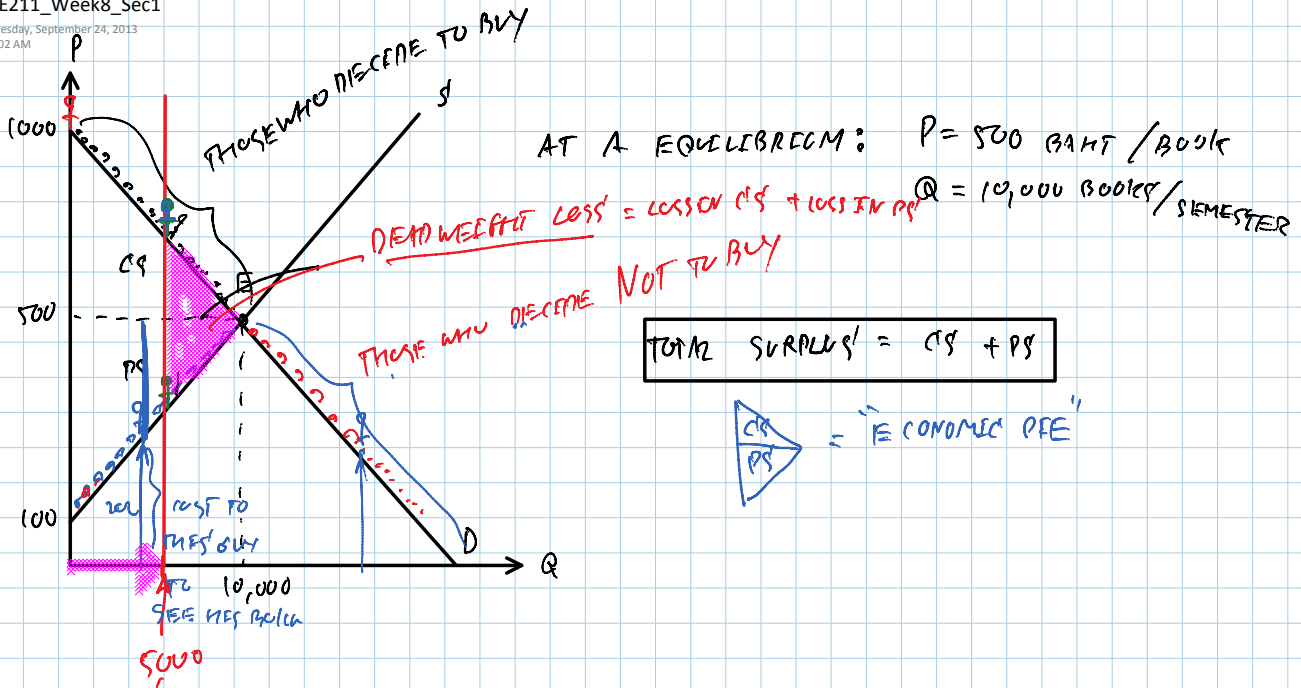 E211_Week8_Sec1
esday, September 24, 2013
02 AM
P
1000
THOSE WHO DIECEDE TO BUY
S
AT A EQUILIBRIUM: P = 500 BAHT / BOOK
Q = 10,000 BOOKS / SEMESTER
DEADWEIGHT LOSS = LOSS IN CS + LOSS IN PS
CS
E
500
THOSE WHO DIECEDE NOT TO BUY
TOTAL SURPLUS = CS + PS
PS
CS
PS
= "ECONOMIC PIE"
100
COST TO
THIS GUY
D
Q
TO
10,000
SELL HIS BOOK
5000